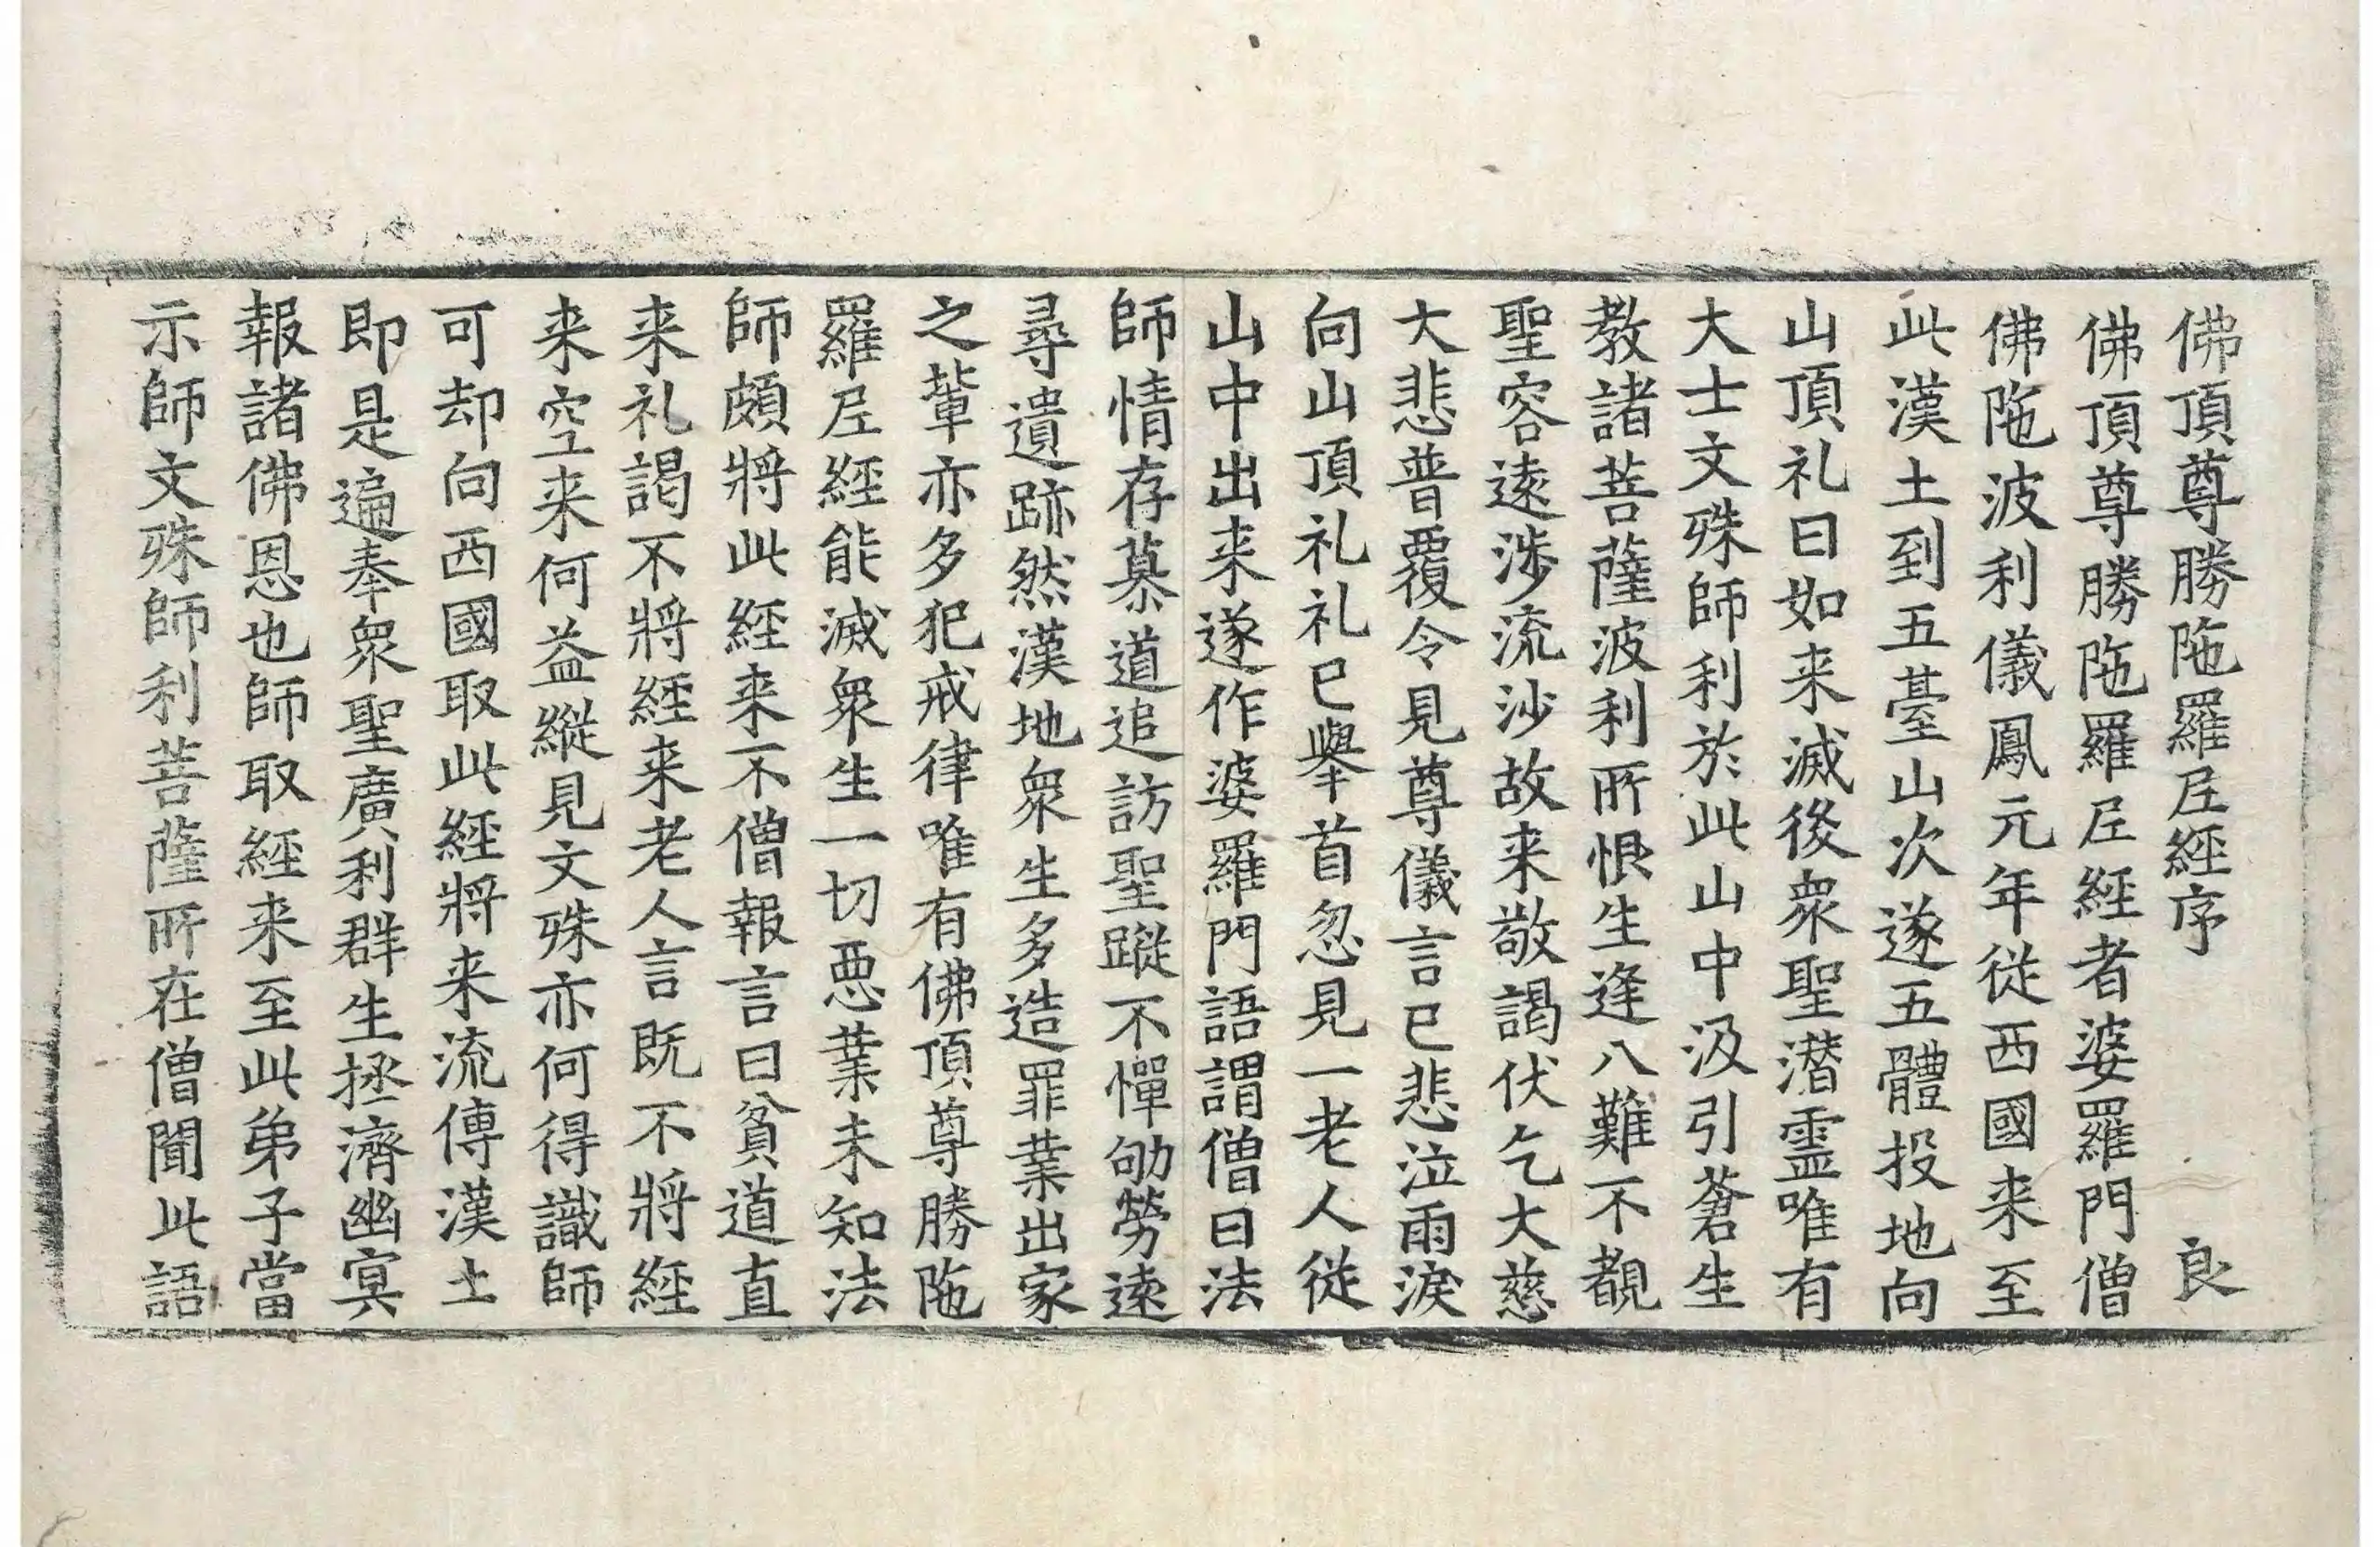 佛頂尊勝陁羅尼經序 良
佛頂尊勝陁羅尼經者婆羅門僧
佛陁波利儀鳳元年從西國来至
此漢土到五臺山次遂五體投地向
山頂礼曰如来滅後衆聖潜靈唯有
大士文殊師利於此山中汲引蒼生
教諸菩薩波利所恨生逢八難不覩
聖容遠涉流沙故来敬謁伏乞大慈
大悲普覆令見尊儀言已悲泣雨淚
向山頂礼礼已舉首忽見一老人從
山中出来遂作婆羅門語謂僧曰法
師情存慕道追訪聖蹤不憚劬勞遠
尋遺跡然漢地衆生多造罪業出家
之輩亦多犯戒律唯有佛頂尊勝陁
羅尼經能滅衆生一切惡業未知法
師頗將此經来不僧報言曰貧道直
来礼謁不將經来老人言既不將經
来空来何益縱見文殊亦何得識師
可却向西國取此經將来流傳漢土
即是遍奉衆聖廣利群生拯濟幽冥
報諸佛恩也師取經来至此弟子當
示師文殊師利菩薩所在僧聞此語